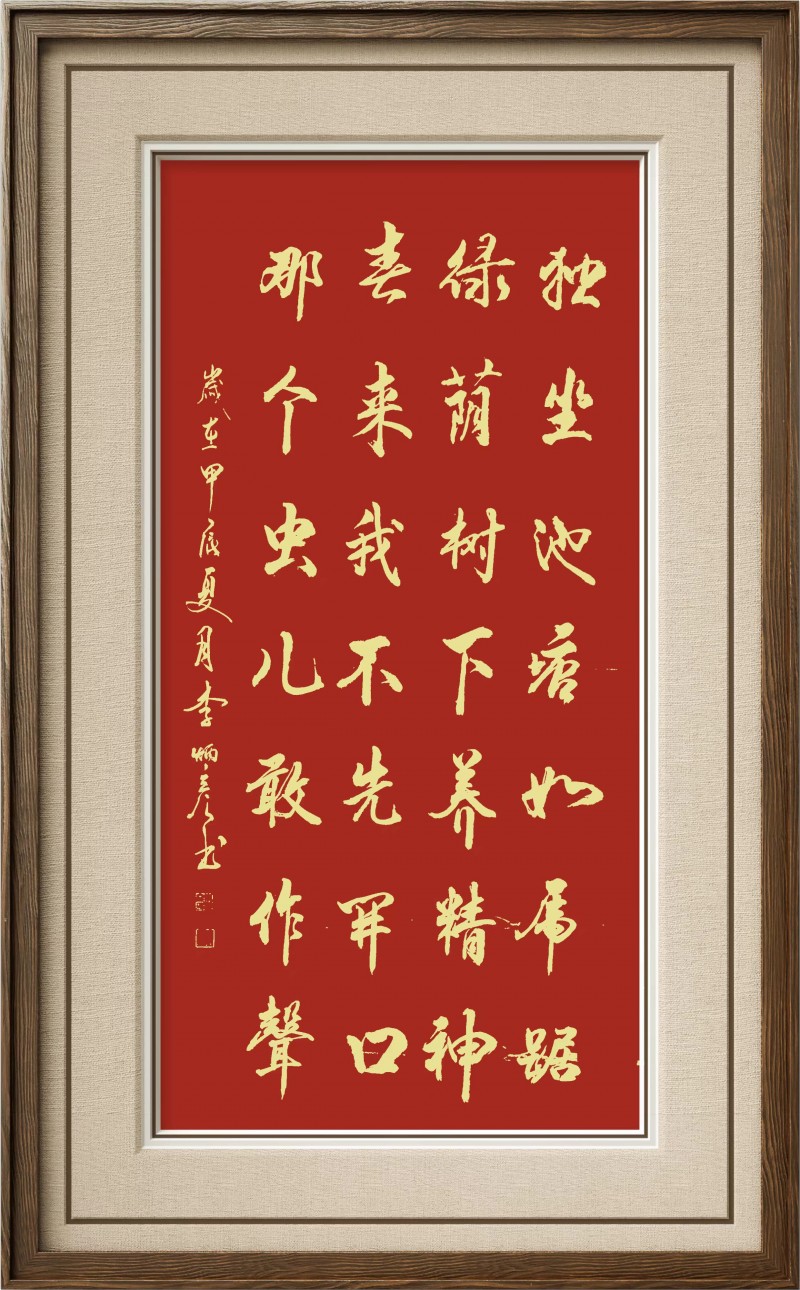 独坐池塘如虎踞
绿荫树下养精神
春来我不先开口
那个虫儿敢作聲
歲在甲辰夏月李炳彦书